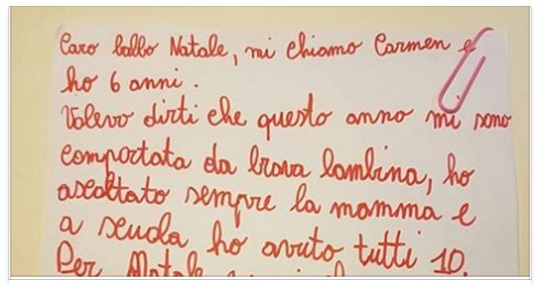 Caro babbo Natale, mi chiamo Carmen e
ho 6 anni.
Volevo dirti che questo anno mi sono
comportata da brava bambina, ho
ascoltato sempre la mamma e
a scuola ho avuto tutti 10.
Per Natale